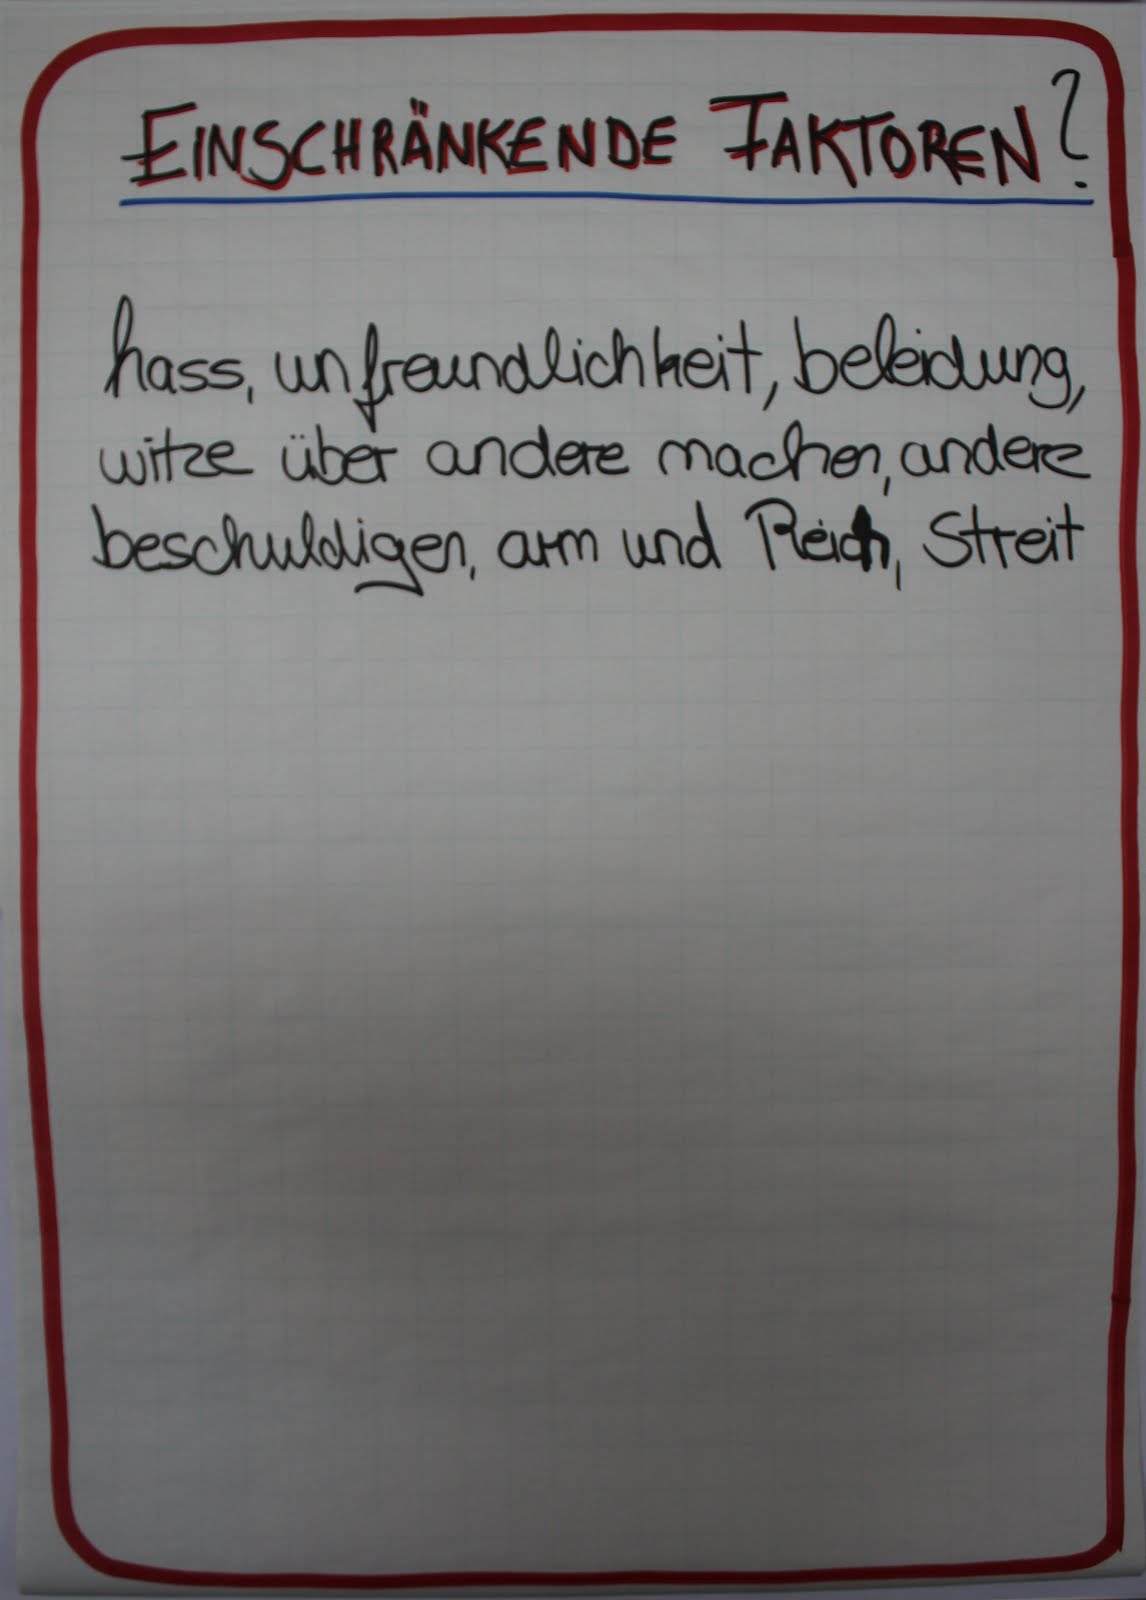 EINSCHRÄNKENDE FAKTOREN?
hass, unfreundlichkeit, beleidung,
witze über andere machen, andere
beschuldigen, arm und Reich, Streit